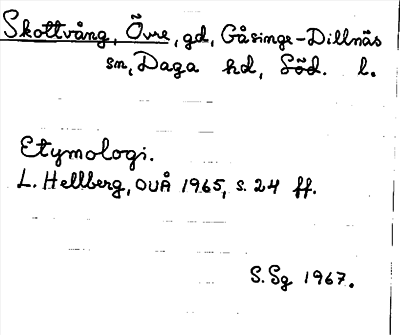 Skottvång, Övre, gd, Gåsinge-Dillnäs
sn, Daga hd, Söd. l.
Etymologi.
L. Hellberg, OUÅ 1965, s. 24 ff.
S. Sg 1967.